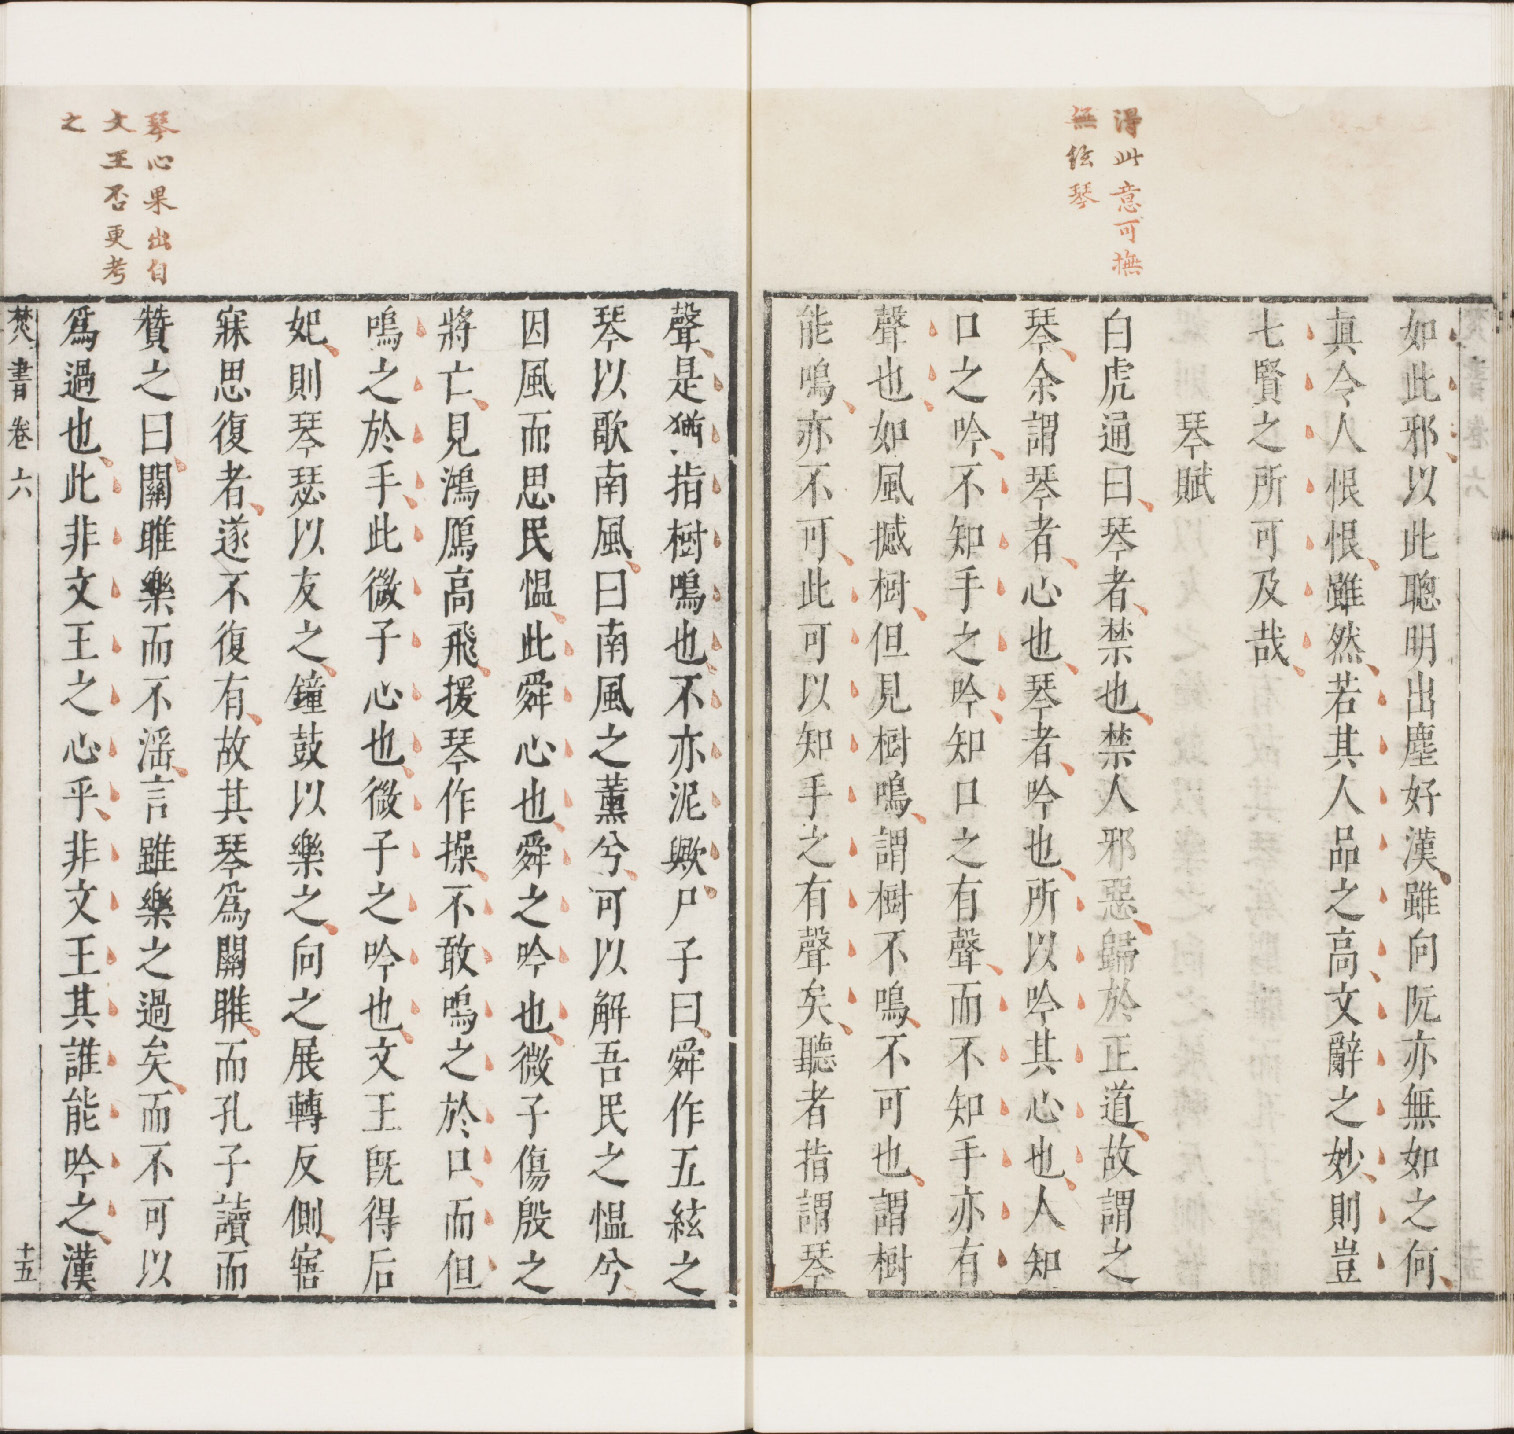 得此意可撫
無絃琴
如此邪以此聰明出塵好漢雖向阮亦無如之何
真令人恨恨雖然若其人品之高文辭之妙則豈
七賢之所可及哉
琴賦
白虎通曰琴者禁也禁人邪惡歸於正道故謂之
琴余謂琴者心也琴者吟也所以吟其心也人知
口之吟不知手之吟知口之有聲而不知手亦有
聲也如風撼樹但見樹鳴謂樹不鳴不可也謂樹
能鳴亦不可此可以知手之有聲矣聽者指謂琴
琴心果出自
文王否更考
之
聲是猶指樹鳴也不亦泥歟尸子曰舜作五絃之
琴以歌南風曰南風之薰兮可以解吾民之愠兮
因風而思民愠此舜心也舜之吟也微子傷殷之
將亡見鴻鴈高飛援琴作操不敢鳴之於口而但
鳴之於手此微子心也微子之吟也文王旣得后
妃則琴瑟以友之鐘鼓以樂之向之展轉反側寤
寐思復者遂不復有故其琴爲關雎而孔子讀而
贊之曰關雎樂而不滛言雖樂之過矣而不可以
爲過也此非文王之心乎非文王其誰能吟之漢
焚書 卷六 十五